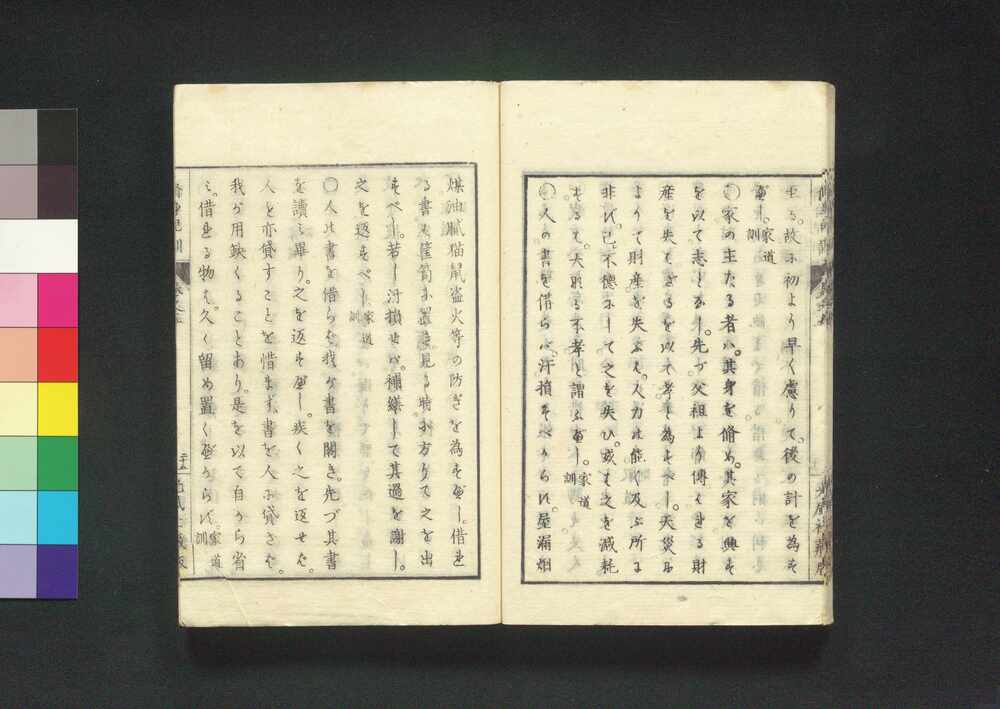 至る。故に初より早く慮りて。後の計を為す
べし。家道訓
○家の主たる者ハ。其身を脩め。其家を興す
を以て志とすべし。先づ父祖より傳へたる財
産を失ハざるを以て孝と為すべし。天災に
よりて則産を失ふハ。人力の能く及ぶ所に
非ず。己不徳にして之を失ひ。或ハ之を減耗
するハ。大なる不孝と謂ふべし。家道訓
○人の書を借らバ。汙損すべからず。屋漏烟
煤油膩猫鼠盗火等の防ぎを為すべし。借た
る書ハ筐笥に置き。見る時に方りて之を出
すべし。若し汙損せバ。補繕して其過を謝し。
之を返すべし。家道訓
○人の書を借らバ。我が書を閣き。先づ其書
を讀み畢り。之を返すべし。疾く之を返せバ。
人も亦貸すことを惜まず。書を人に貸さバ。
我が用缺くることあり。是を以て自から省
み。借たる物ハ。久く留め置くべからず。家道訓